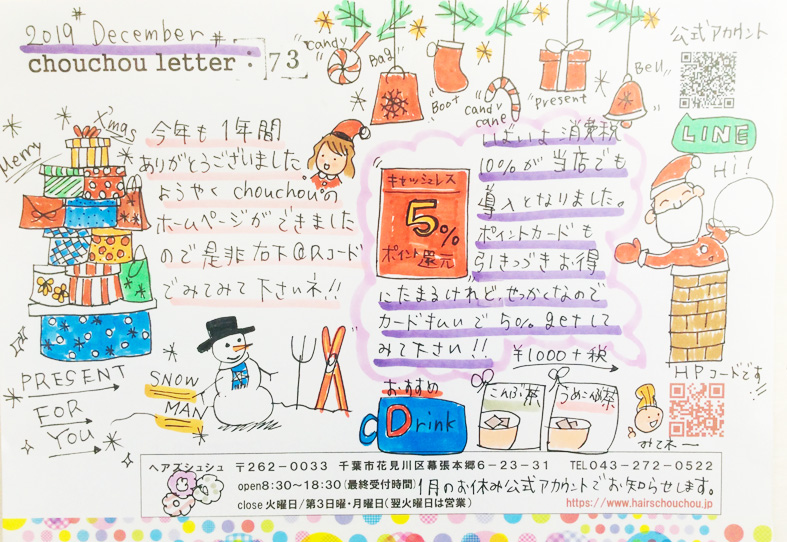 2019 December
chouchou letter : 73
"Candy"
"Bag"
"Boot"
"Candy cane"
"Present"
"Bell"
公式アカウント
LINE
Hi!
Merry X'mas
今年も1年間
ありがとうございました
ようやくchouchouの
ホームページができました
ので是非右下QRコード
でみてみて下さいネ!!
いよいよ消費税
10%が当店でも
導入となりました。
ポイントカードも
引きつづきお得
にたまるけれど、せっかくなので
カード払いで5% getして
みて下さい!!
キャッシュレス
5%
ポイント還元
PRESENT
FOR
YOU
SNOW
MAN
¥1000+税
おすすめ
Drink
こんぶ茶
うめこんぶ茶
HPコードです!!
みてネー
ヘアズシュシュ 〒262-0033 千葉市花見川区幕張本郷6-23-31 TEL043-272-0522
open8:30~18:30(最終受付時間)
1月のお休み公式アカウントでお知らせします。
close火曜日/第3日曜・月曜日(翌火曜日は営業)
https://www.hairschouchou.jp